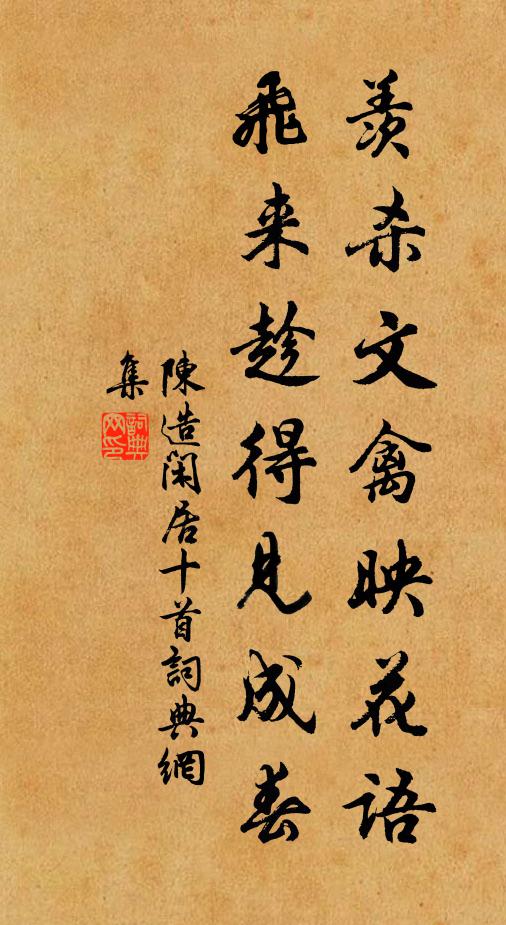 羨杀文禽映花語
飛来趁得見成春
陳造閑居十首詞典網
集
詞典
网印